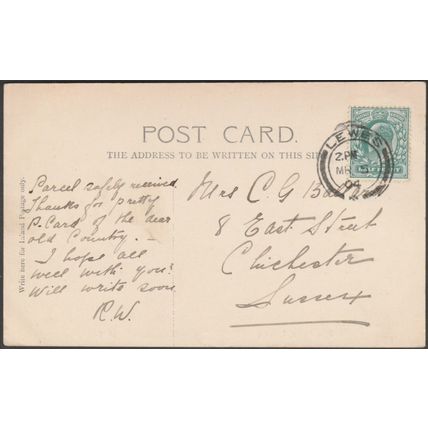 POST CARD.
THE ADDRESS TO BE WRITTEN ON THIS SIDE
Write here for Inland Postage only.
Parcel safely received
Thanks for pretty
P. Card of the dear
old Country. —
I hope all
well with you?
Will write soon
R.W.
Mrs C. G.
8 East Street
Chichester
Sussex
LEWES
2.PM
04